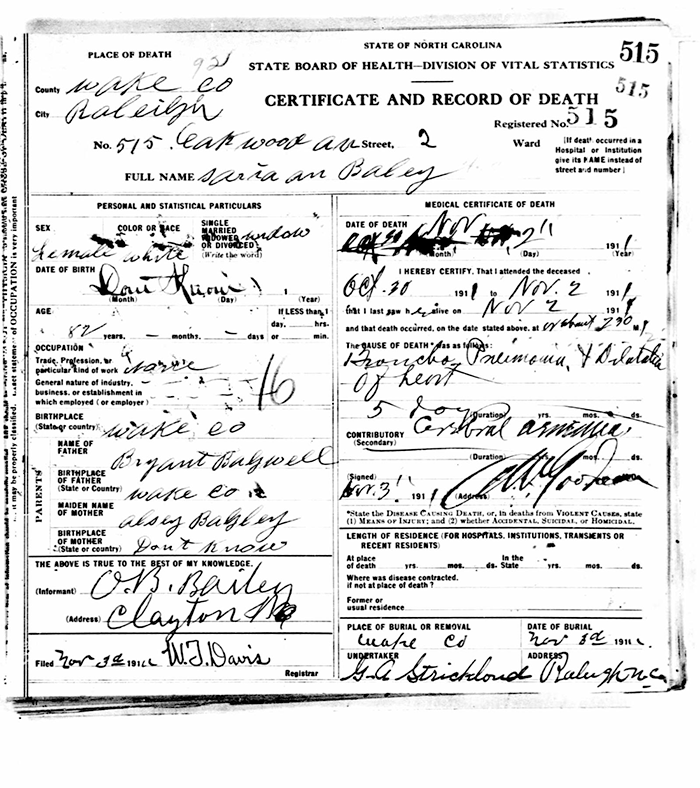 STATE OF NORTH CAROLINA
STATE BOARD OF HEALTH—DIVISION OF VITAL STATISTICS
515
515
CERTIFICATE AND RECORD OF DEATH
Registered No. 515
PLACE OF DEATH
County Wake Co
City Raleigh
No. 515. Oakwood av Street, 2 Ward
(If death occurred in a
Hospital or Institution
give its NAME instead of
street and number)
FULL NAME Saria an Baley
PERSONAL AND STATISTICAL PARTICULARS
SEX
COLOR OR RACE
SINGLE
MARRIED
WIDOWED
OR DIVORCED
(Write the word)
widow
Female white
DATE OF BIRTH
Dont Know
(Month) (Day) (Year)
AGE
If LESS than
82 years, — months, — days
day, hrs.
or min.
OCCUPATION
Trade, Profession, or
particular kind of work
General nature of industry,
business, or establishment in
which employed (or employer)
16
BIRTHPLACE
(State or country) Wake Co
PARENTS
NAME OF
FATHER Bryant Bagwell
BIRTHPLACE
OF FATHER
(State or Country) Wake Co
MAIDEN NAME
OF MOTHER alsey Bagley
BIRTHPLACE
OF MOTHER
(State or Country) Dont Know
THE ABOVE IS TRUE TO THE BEST OF MY KNOWLEDGE.
(Informant) O.B. Bailey
(Address) Clayton
Filed Nov 3rd 191 W.T. Davis
Registrar
MEDICAL CERTIFICATE OF DEATH
DATE OF DEATH
Nov 2 191
I HEREBY CERTIFY, That I attended the deceased
Oct. 30 191 to Nov. 2 191
that I last saw her alive on Nov 2 191
and that death occurred, on the date stated above, at or about 230 M.
The CAUSE OF DEATH* was as follows:
Broncho Pneumonia, & Dilatation
of heart
5 day (Duration) yrs. mos. ds.
CONTRIBUTORY
(Secondary)
Cerebral
(Duration) yrs. mos. ds.
(Signed)
Nov. 3 191 (Address)
*State the DISEASE CAUSING DEATH, or, in deaths from VIOLENT CAUSES, state
(1) MEANS OF INJURY; and (2) whether ACCIDENTAL, SUICIDAL, or HOMICIDAL.
LENGTH OF RESIDENCE (FOR HOSPITALS, INSTITUTIONS, TRANSIENTS OR
RECENT RESIDENTS)
At place
of death yrs. mos. ds.
In the
State yrs. mos. ds.
Where was disease contracted,
if not at place of death?
Former or
usual residence
PLACE OF BURIAL OR REMOVAL
Wake Co
DATE OF BURIAL
Nov 3d 191
UNDERTAKER
G. A Strickland
ADDRESS
Raleigh N.C.